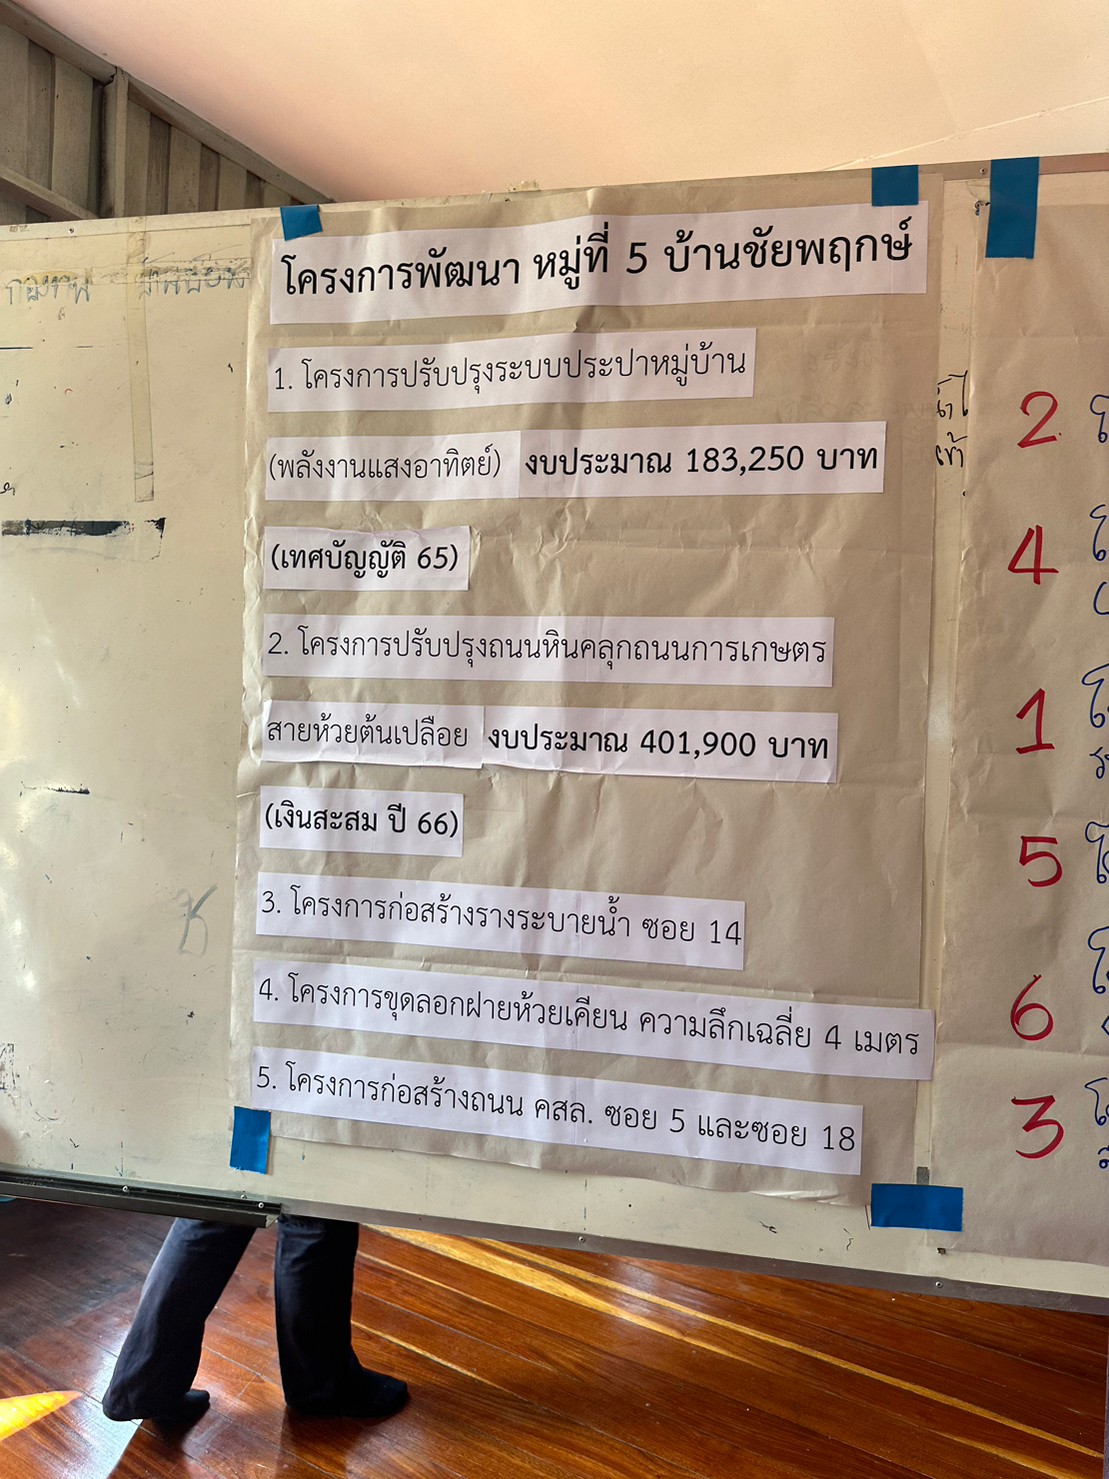 โครงการพัฒนา หมู่ที่ 5 บ้านชัยพฤกษ์
1. โครงการปรับปรุงระบบประปาหมู่บ้าน
(พลังงานแสงอาทิตย์) งบประมาณ 183,250 บาท
(เทศบัญญัติ 65)
2. โครงการปรับปรุงถนนหินคลุกถนนการเกษตร
สายห้วยต้นเปลือย งบประมาณ 401,900 บาท
(เงินสะสม ปี 66)
3. โครงการก่อสร้างรางระบายน้ำ ซอย 14
4. โครงการขุดลอกฝายห้วยเคียน ความลึกเฉลี่ย 4 เมตร
5. โครงการก่อสร้างถนน คสล. ซอย 5 และซอย 18
2
4
1
5
6
3